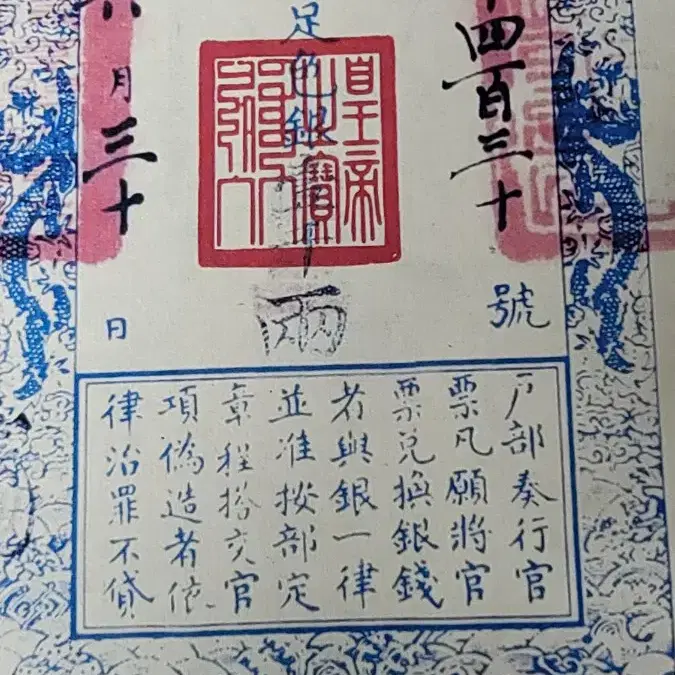 四百三十號
足色銀
兩
月三十日
皇帝
寶
戶部奏行官
票凡願將官
票兌換銀錢
者與銀一律
並准按部定
章程搭交官
項偽造者依
律治罪不貸